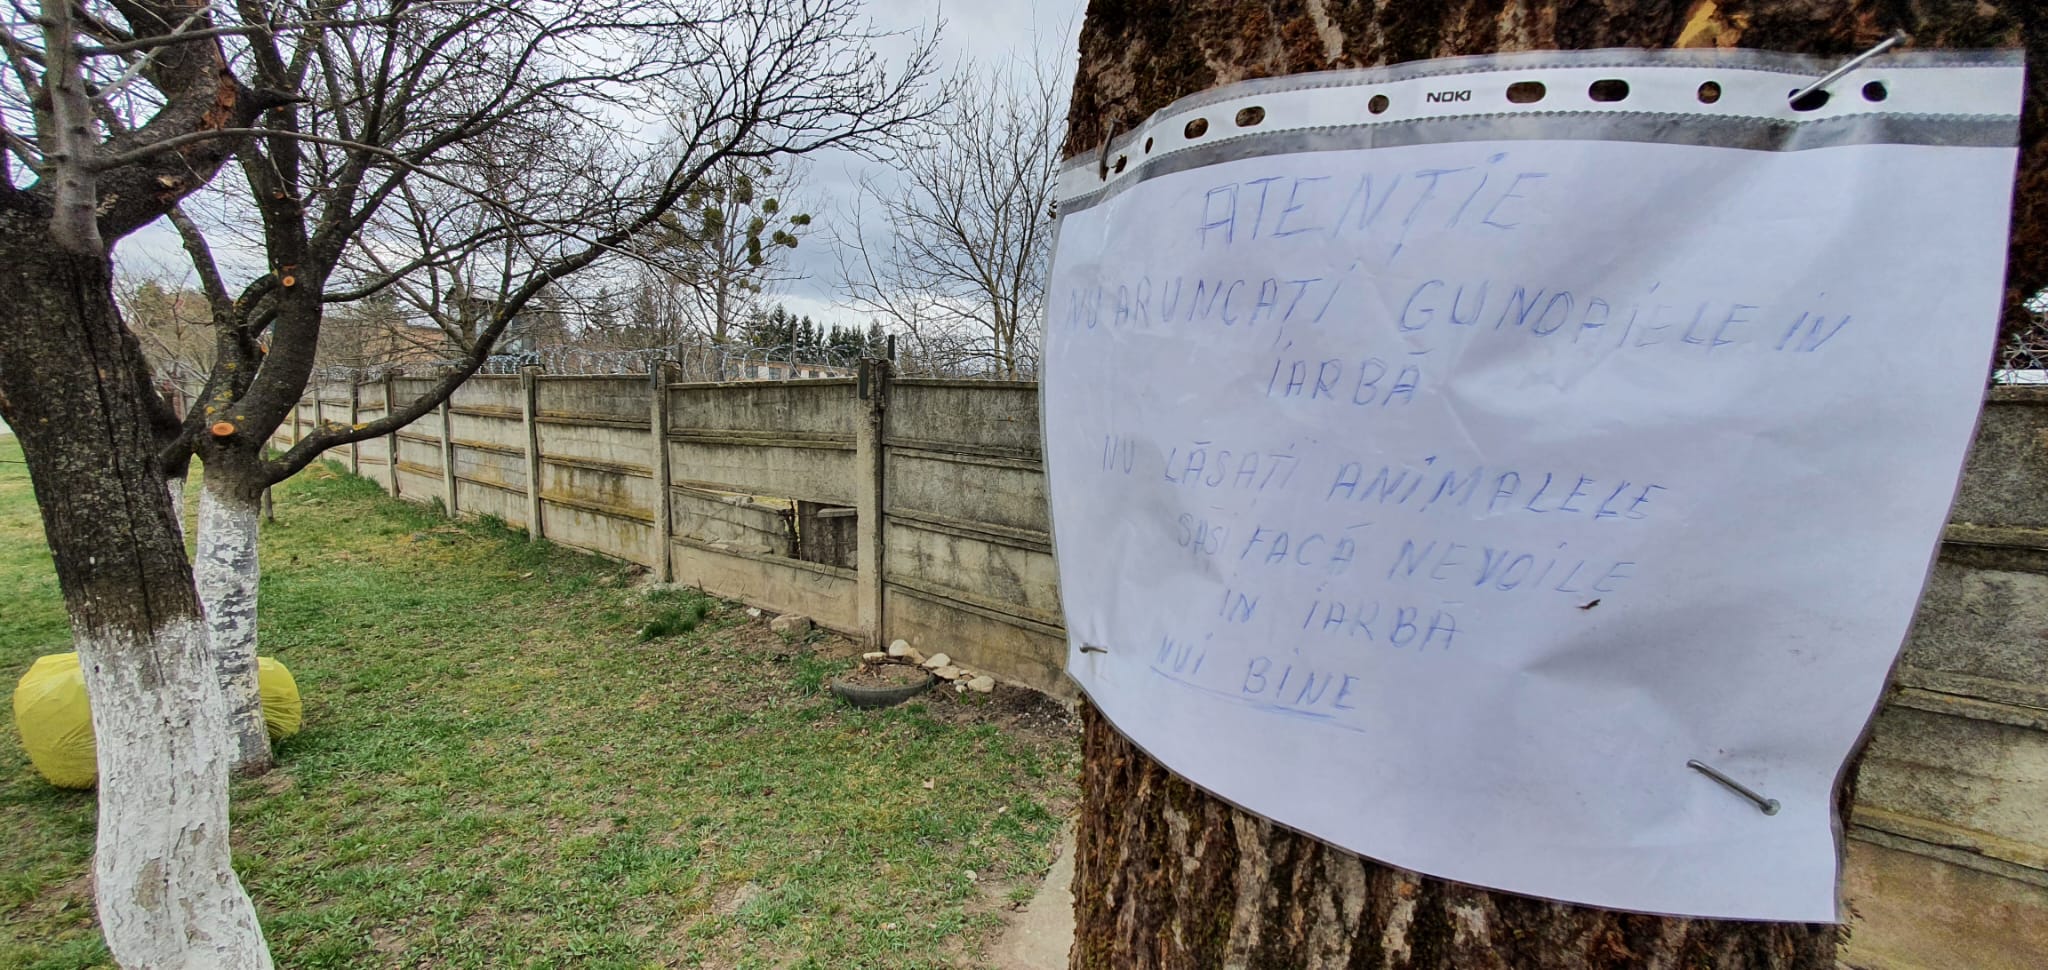 NOKI
ATENȚIE
NU ARUNCAȚI GUNOAIELE IN
IARBĂ
NU LĂSAȚI ANIMALELE
SĂSI FACĂ NEVOILE
IN IARBĂ
NUI BINE